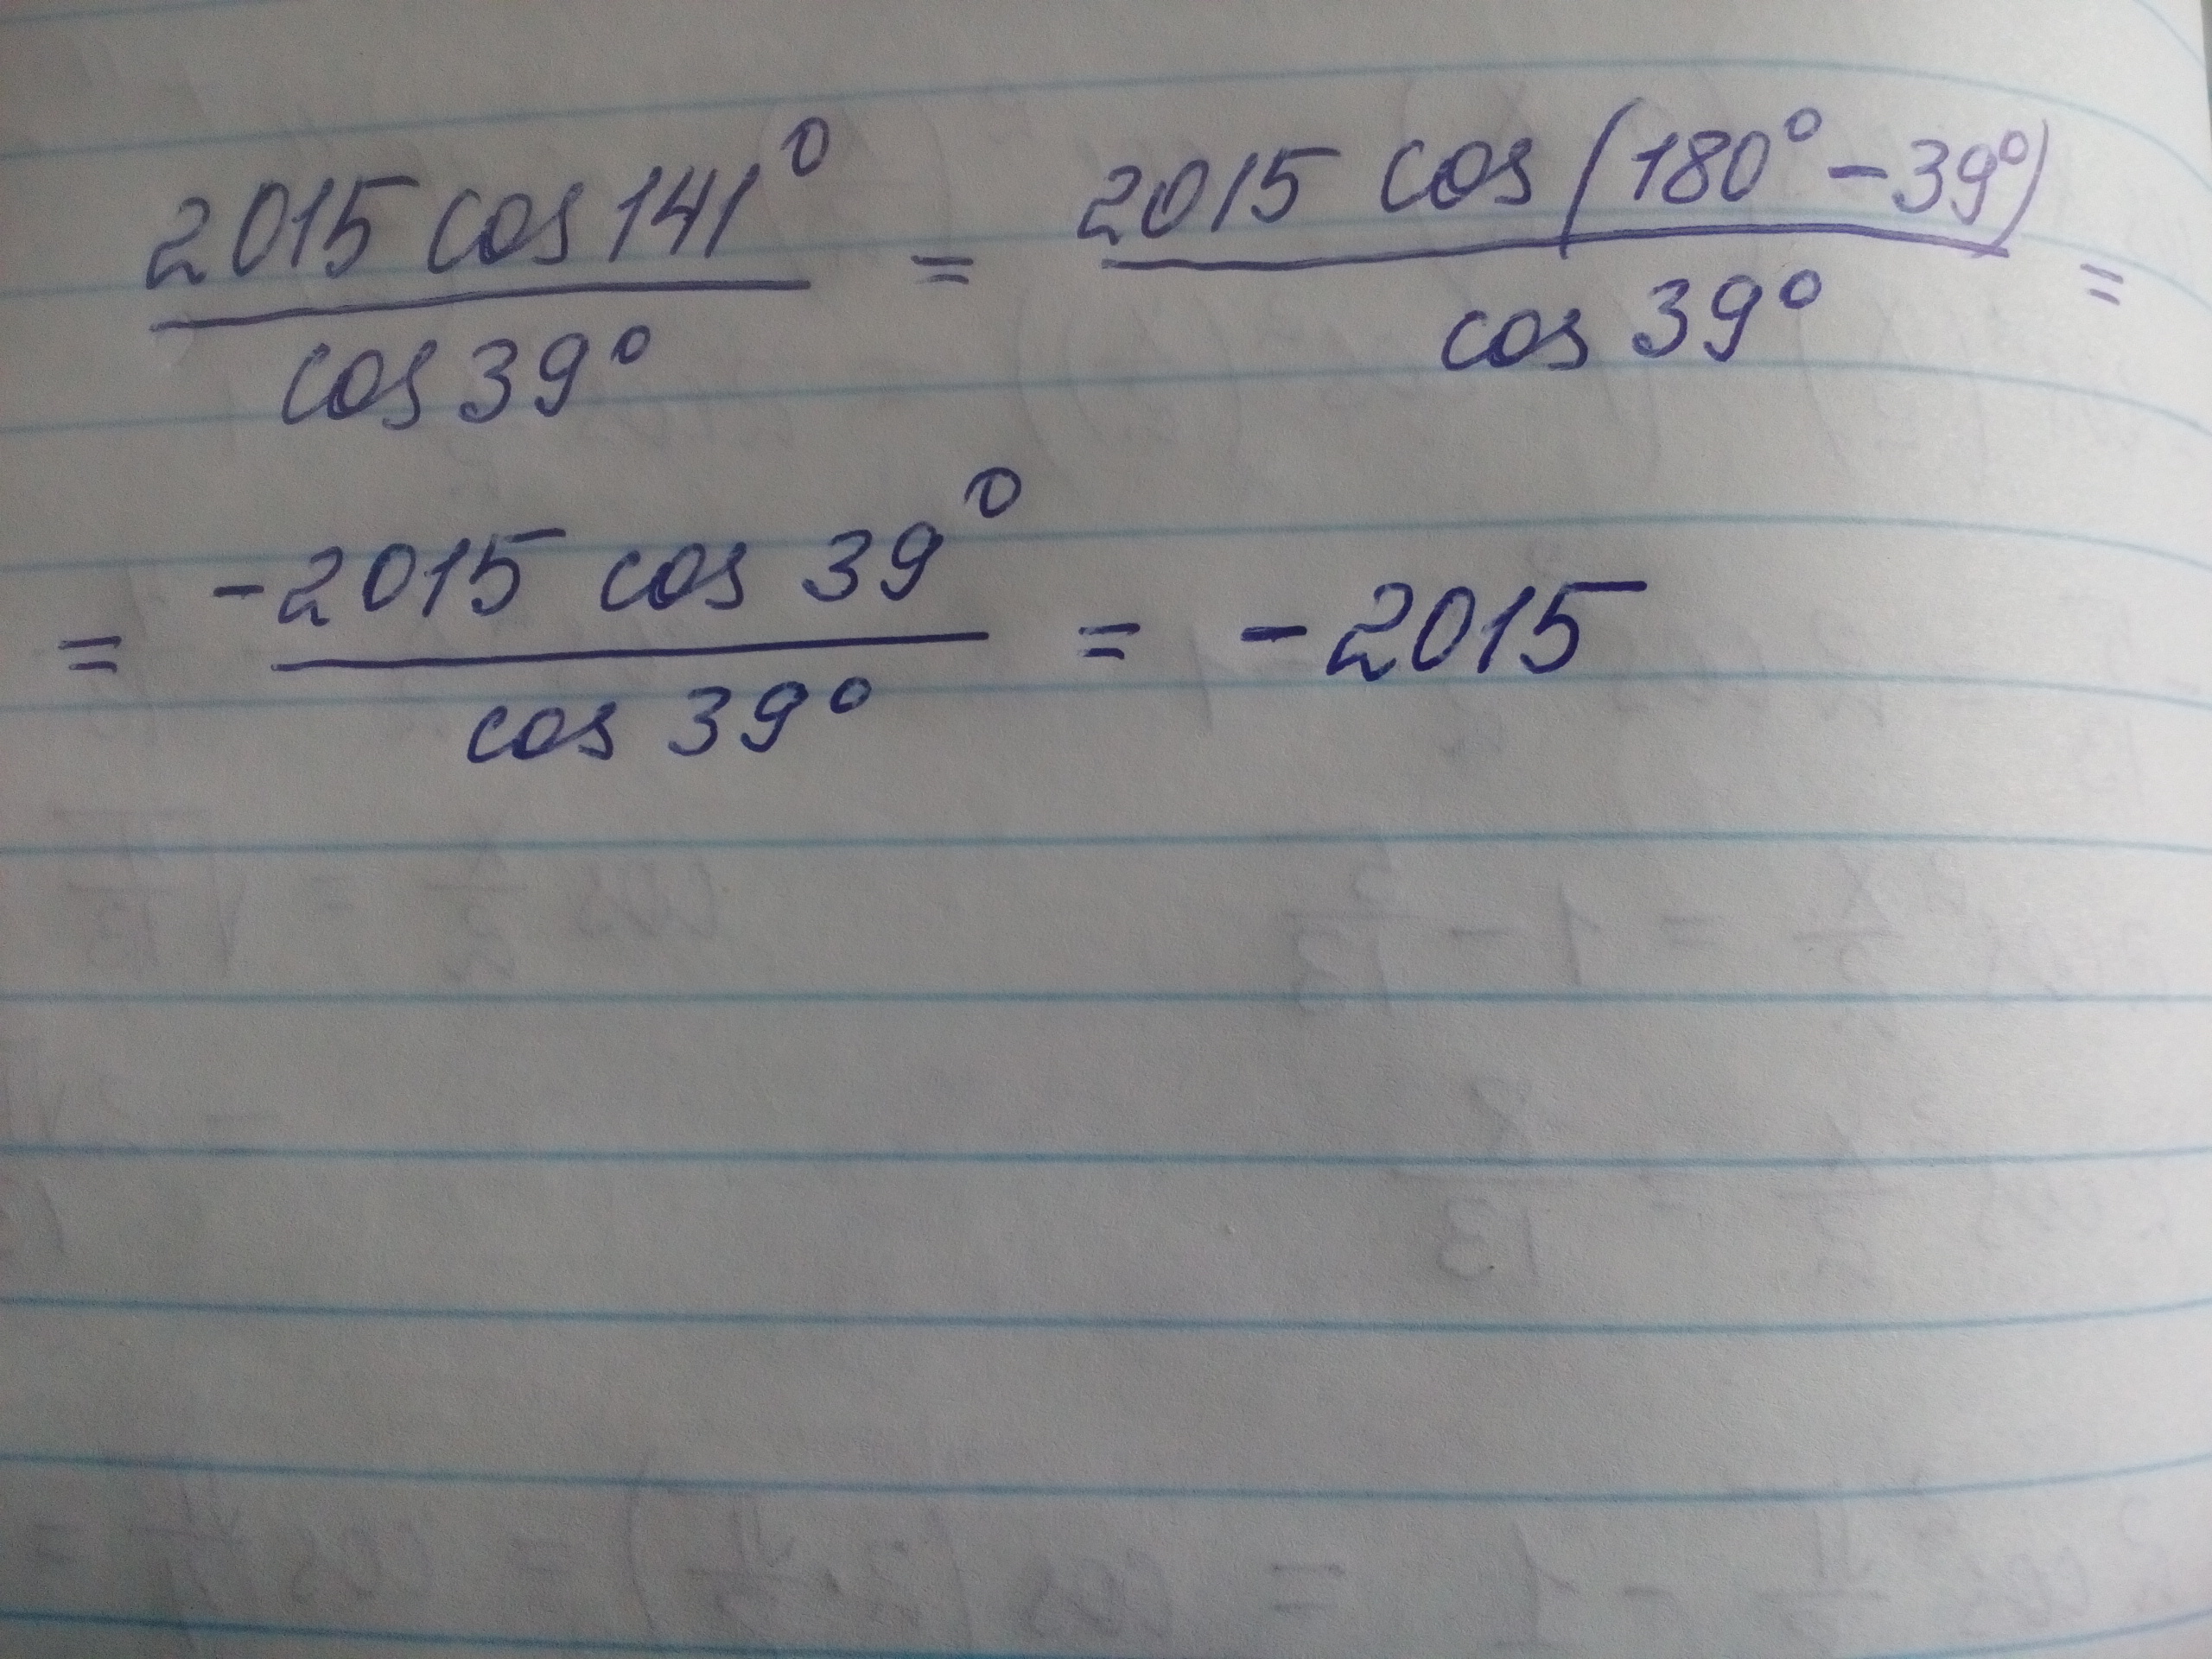 2015 cos 141° / cos 39° = 2015 cos (180° - 39°) / cos 39° =
= -2015 cos 39° / cos 39° = -2015